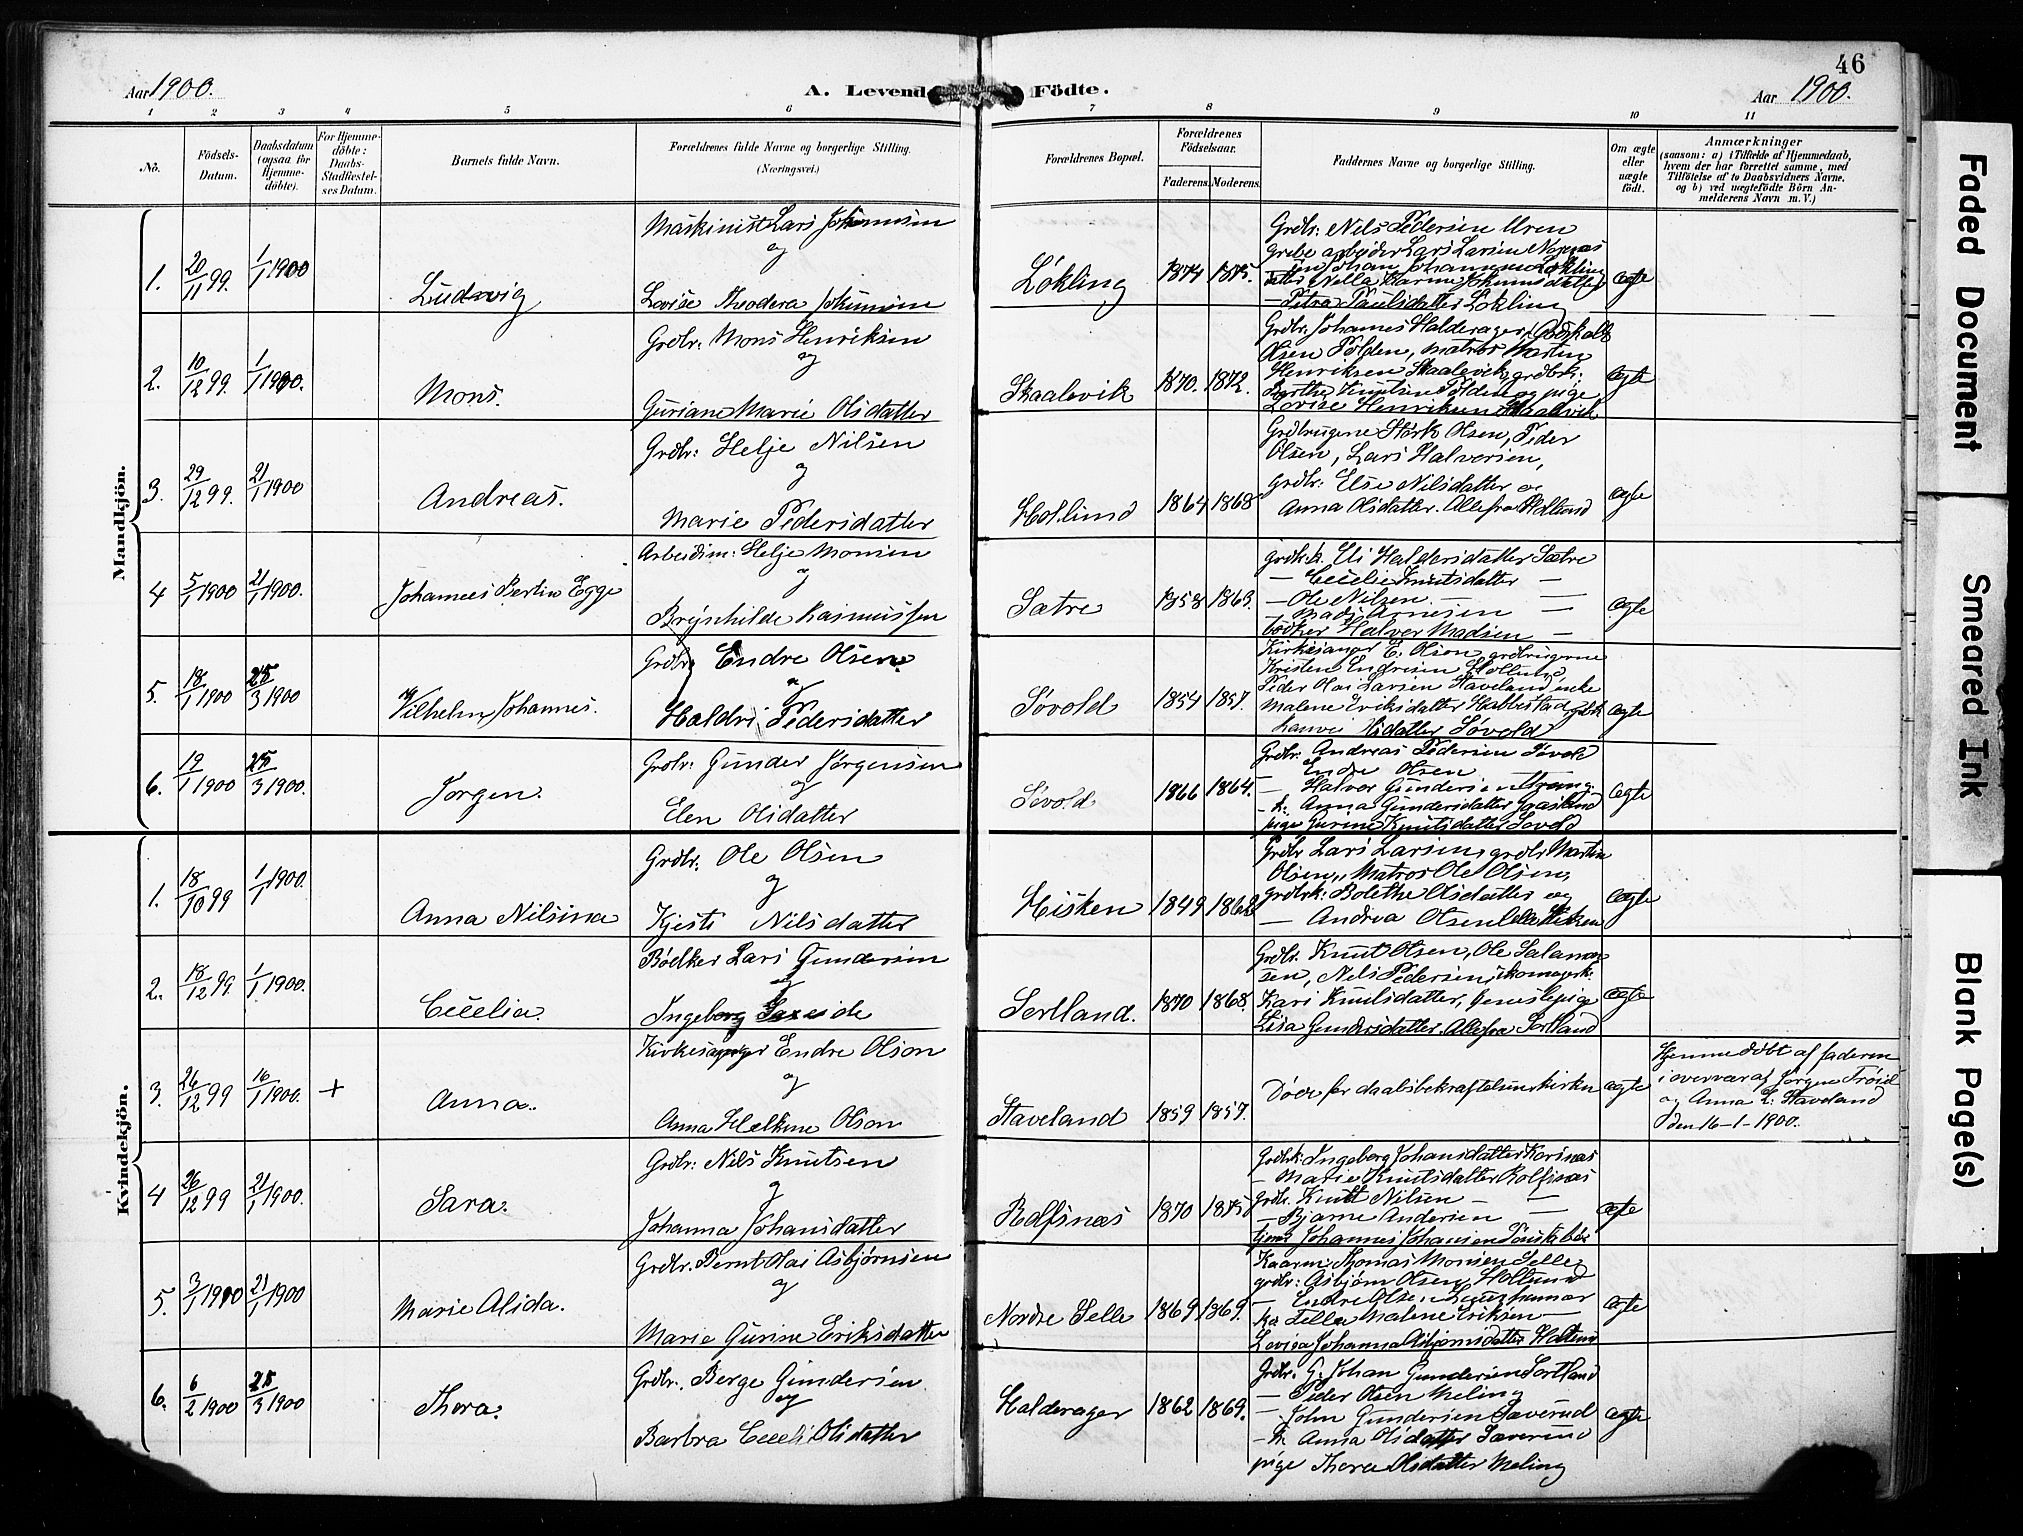 46
Aar 1900.
A. Levende Födte.
Aar 1900.
1 2 3 4 5 6 7 8 9 10 11
No.
Födsels-Datum.
Daabsdatum (ogsaa for Hjemme-döbte).
For Hjemme-döbte: Daabs-Stadfæstel-ses Datum.
Barnets fulde Navn.
Forældrenes fulde Navne og borgerlige Stilling. (Næringsvei.)
Forældrenes Bopæl.
Forældrenes Födselsaar.
Faderens. Moderens.
Faddernes Navne og borgerlige Stilling.
Om ægte eller uægte födt.
Anmærkninger
(saasom: a) i Tilfælde af Hjemmedaab,
hvem der har forrettet samme, med
Tilföielse af to Daabsvidners Navne.
og b) ved uægtefödte Börn An-
melderens Navn m. V.)
Mandkjön.
1. 20/11 99. 1/1 1900
Ludvig
Maskinist Lars Johannesen
og
Lovise Theodora Johannesen
Løkling 1874 1875.
Grdbr: Nils Pedersen Uren
Petra Paulsdatter Løkling
ægte
2. 10/12 99. 1/1 1900.
Mons.
Grdbr: Mons Henriksen
og
Guriane Marie Olsdatter
Skaalevik 1870. 1872.
Grdbr. Johannes Halderager,
Olsen Folden, matros Martin
Henriksen Skaalevik, grdbrk.
Lovise Henriksen Skaalevik
ægte
3. 29/12 99. 21/1 1900
Andreas.
Grdbr: Helje Nilsen
og
Marie Pedersdatter
Hollund 1864 1868
Grdbrugerne Størk Olsen, Peder
Olsen, Lars Halvorsen,
Grdbr: Else Nilsdatter og
Anna Olsdatter. Alle fra Hollund
ægte
4 5/1 1900 21/1 1900.
Johannes Bertin Egge
Arbeidsm: Helje Monsen
og
Brynhilde Rasmussen
Sætre 1858 1863.
grdbrk. Eli Haldorsdatter Sætre
— Cecelie Knutsdatter —
— Ole Nilsen —
— Mads Arnesen —
bødker Halvor Madsen —
ægte
5. 18/1 1900 25/3 1900
Vilhelm Johannes.
Grdbr. Endre Olsen
og
Haldri Pedersdatter
Søvold 1854 1857.
Kirkesanger E. Olson, grdbrugerne
Kristen Endresen Hollund,
Peder Olai Larsen Staveland, enke
Malene Eriksdatter Habbestad, grdbrk
Olsdatter Søvold
ægte
6. 19/1 1900 25/3 1900.
Jørgen.
Grdbr: Gunder Jørgensen
og
Elen Olsdatter
Søvold 1866 1864.
Grdbr. Andreas Pedersen Søvold
— Endre Olsen
— Halvor Gundersen
— k. Anna Gundersdatter
pige Gurine Knutsdatter Søvold
ægte
Kvindekjön.
1. 18/10 99 1/1 1900.
Anna Nilsina
Grdbr. Ole Olsen
og
Kjesti Nilsdatter
Hisken 1849 1862
Grdbr Lars Larsen, grdbr Martin
Olsen, Matros Ole Olsen,
grdbrk: Bolethe Olsdatter og
— Andrea Olsen alle Hisken
ægte
2. 18/12 99. 1/1 1900.
Cecelia.
Bødker Lars Gundersen
og
Ingeborg
Sortland. 1870 1868.
Grdbr. Knut Olsen, Ole Salamon-
sen, Nils Pedersen, skomagerk.
Kari Knutsdatter,
Lisa Gundersdatter. Alle fra Sortland
ægte
3. 26/12 99 16/1 1900. +
Anna.
Kirkesanger Endre Olson
og
Anna Helkine Olson
Staveland 1859 1857.
Døde før daabsbekræftelsen i kirken
ægte
Hjemmedøbt af faderen
i overvær af Jørgen Frøid
og Anna E. Staveland
den 16-1-1900.
4 26/12 99 21/1 1900.
Sara.
Grdbr: Nils Knutsen
og
Johanna Johansdatter
Rolfsnæs 1870 1875
Grdbrk: Ingeborg Johansdatter
— Marie Knutsdatter Rolfsnæs
Grdbr. Knut Nilsen — —
— Bjarne Andersen —
Johannes Johansen
ægte
5. 3/1 1900 21/1 1900
Marie Alida.
Grdbr. Bernt Olai Asbjørnsen
og
Marie Gurine Eriksdatter
Nordre Selle 1869 1869.
Kaarm Thomas Monsen Selle,
grdbr: Asbjørn Olsen Hollund
— Endre Olsen
Malene Eriksen —
Lovisa Johanna Asbjørnsdatter Hollund
ægte
6. 6/2 1900 25/3 1900
Thora.
Grdbr. Berge Gundersen
og
Barbra Cecelie Olsdatter
Halderager 1862 1869.
Grdbr. G. Johan Gundersen Sortland
— Peder Olsen Meling
— John Gundersen Sæverud
— k. Anna Olsdatter Sæverud
pige Thora Olsdatter Meling
ægte
Faded Document
Smeared Ink
Blank Page(s)